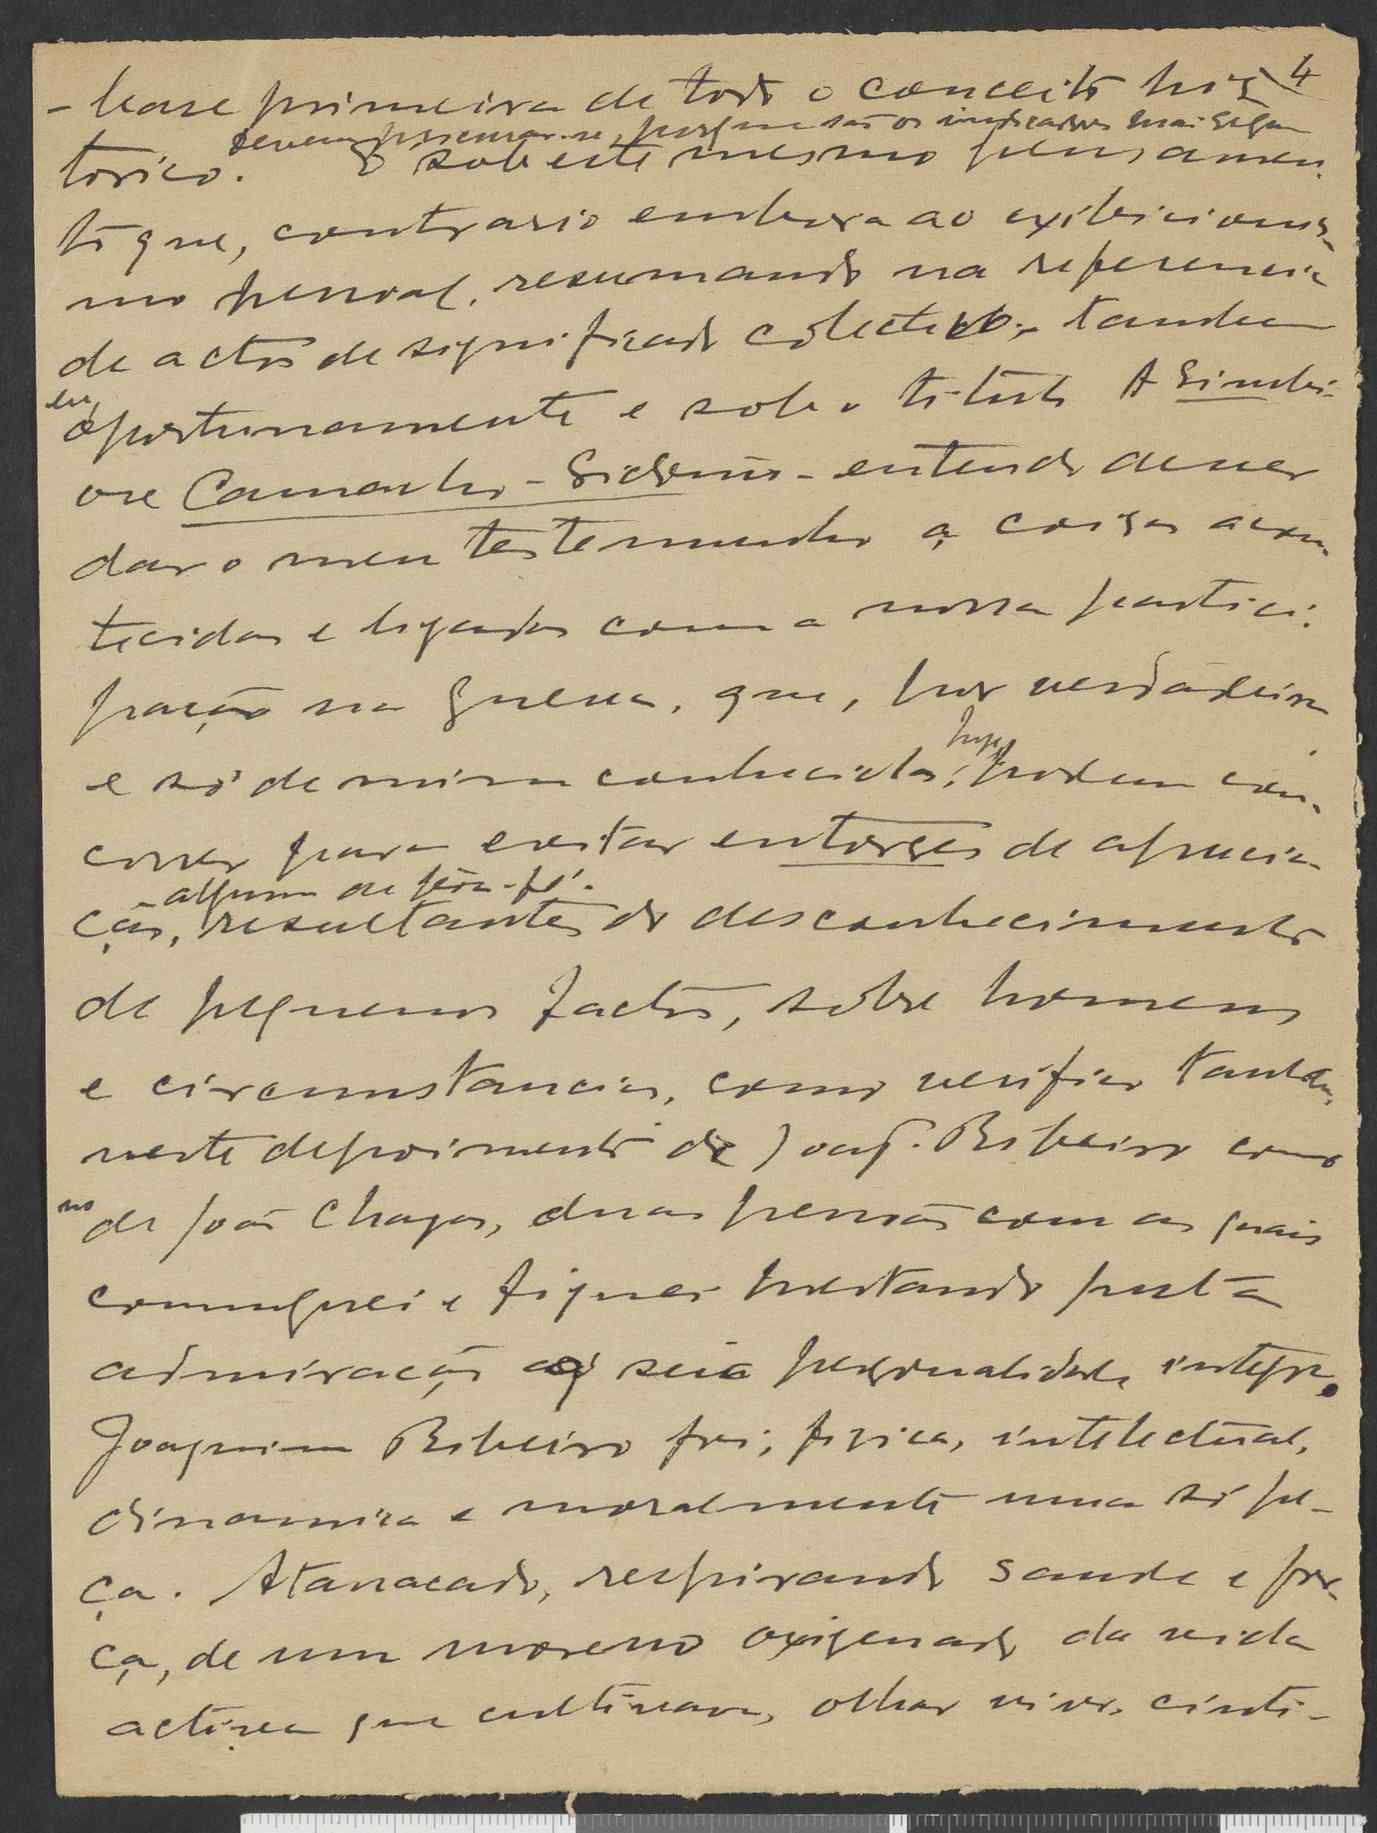 4
- base primeira de todo o conceito his-
devem porque são os indicados mais
torico. E sob este mesmo pensamen-
to que, contrario embora ao exibicionis-
mo pessoal, resumando na referencia
de actos de significado colectivo, tambem
eu,
oportunamente e sob o titulo A Simbi-
ose Camacho-Sidonio - entendo dever
dar o meu testemunho a coisas acon-
tecidas e ligadas com a nossa partici-
pação na guerra, que, por verdadeira
e só de mim conhecidas, podem con-
correr para evitar entorses de aprecia-
alguma de boa-fé.
ção, resultantes do desconhecimento
de pequenos factos, sobre homens
e circumstancias, como verifico tambem
neste depoimento de Joaq. Ribeiro como
no
de João Chagas, duas pessoas com as quais
comunguei e fiquei prestando justa
admiração á sua personalidade integra.
Joaquim Ribeiro foi, fisica, intelectual,
dinamica e moralmente uma só pe-
ça. Atarracado, respirando saude e for-
ça, de um moreno oxigenado da vida
activa que cultivava, olhar vivo, cinti-